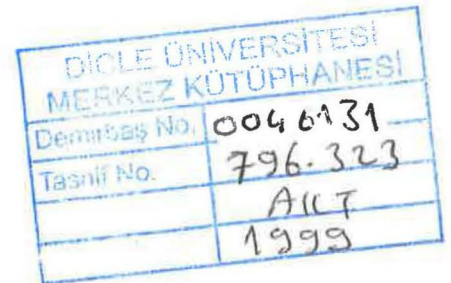 DİCLE ÜNİVERSİTESİ
MERKEZ KÜTÜPHANESİ
Demirbaş No. 0046131
Tasnif No. 796.323
AKT
1999